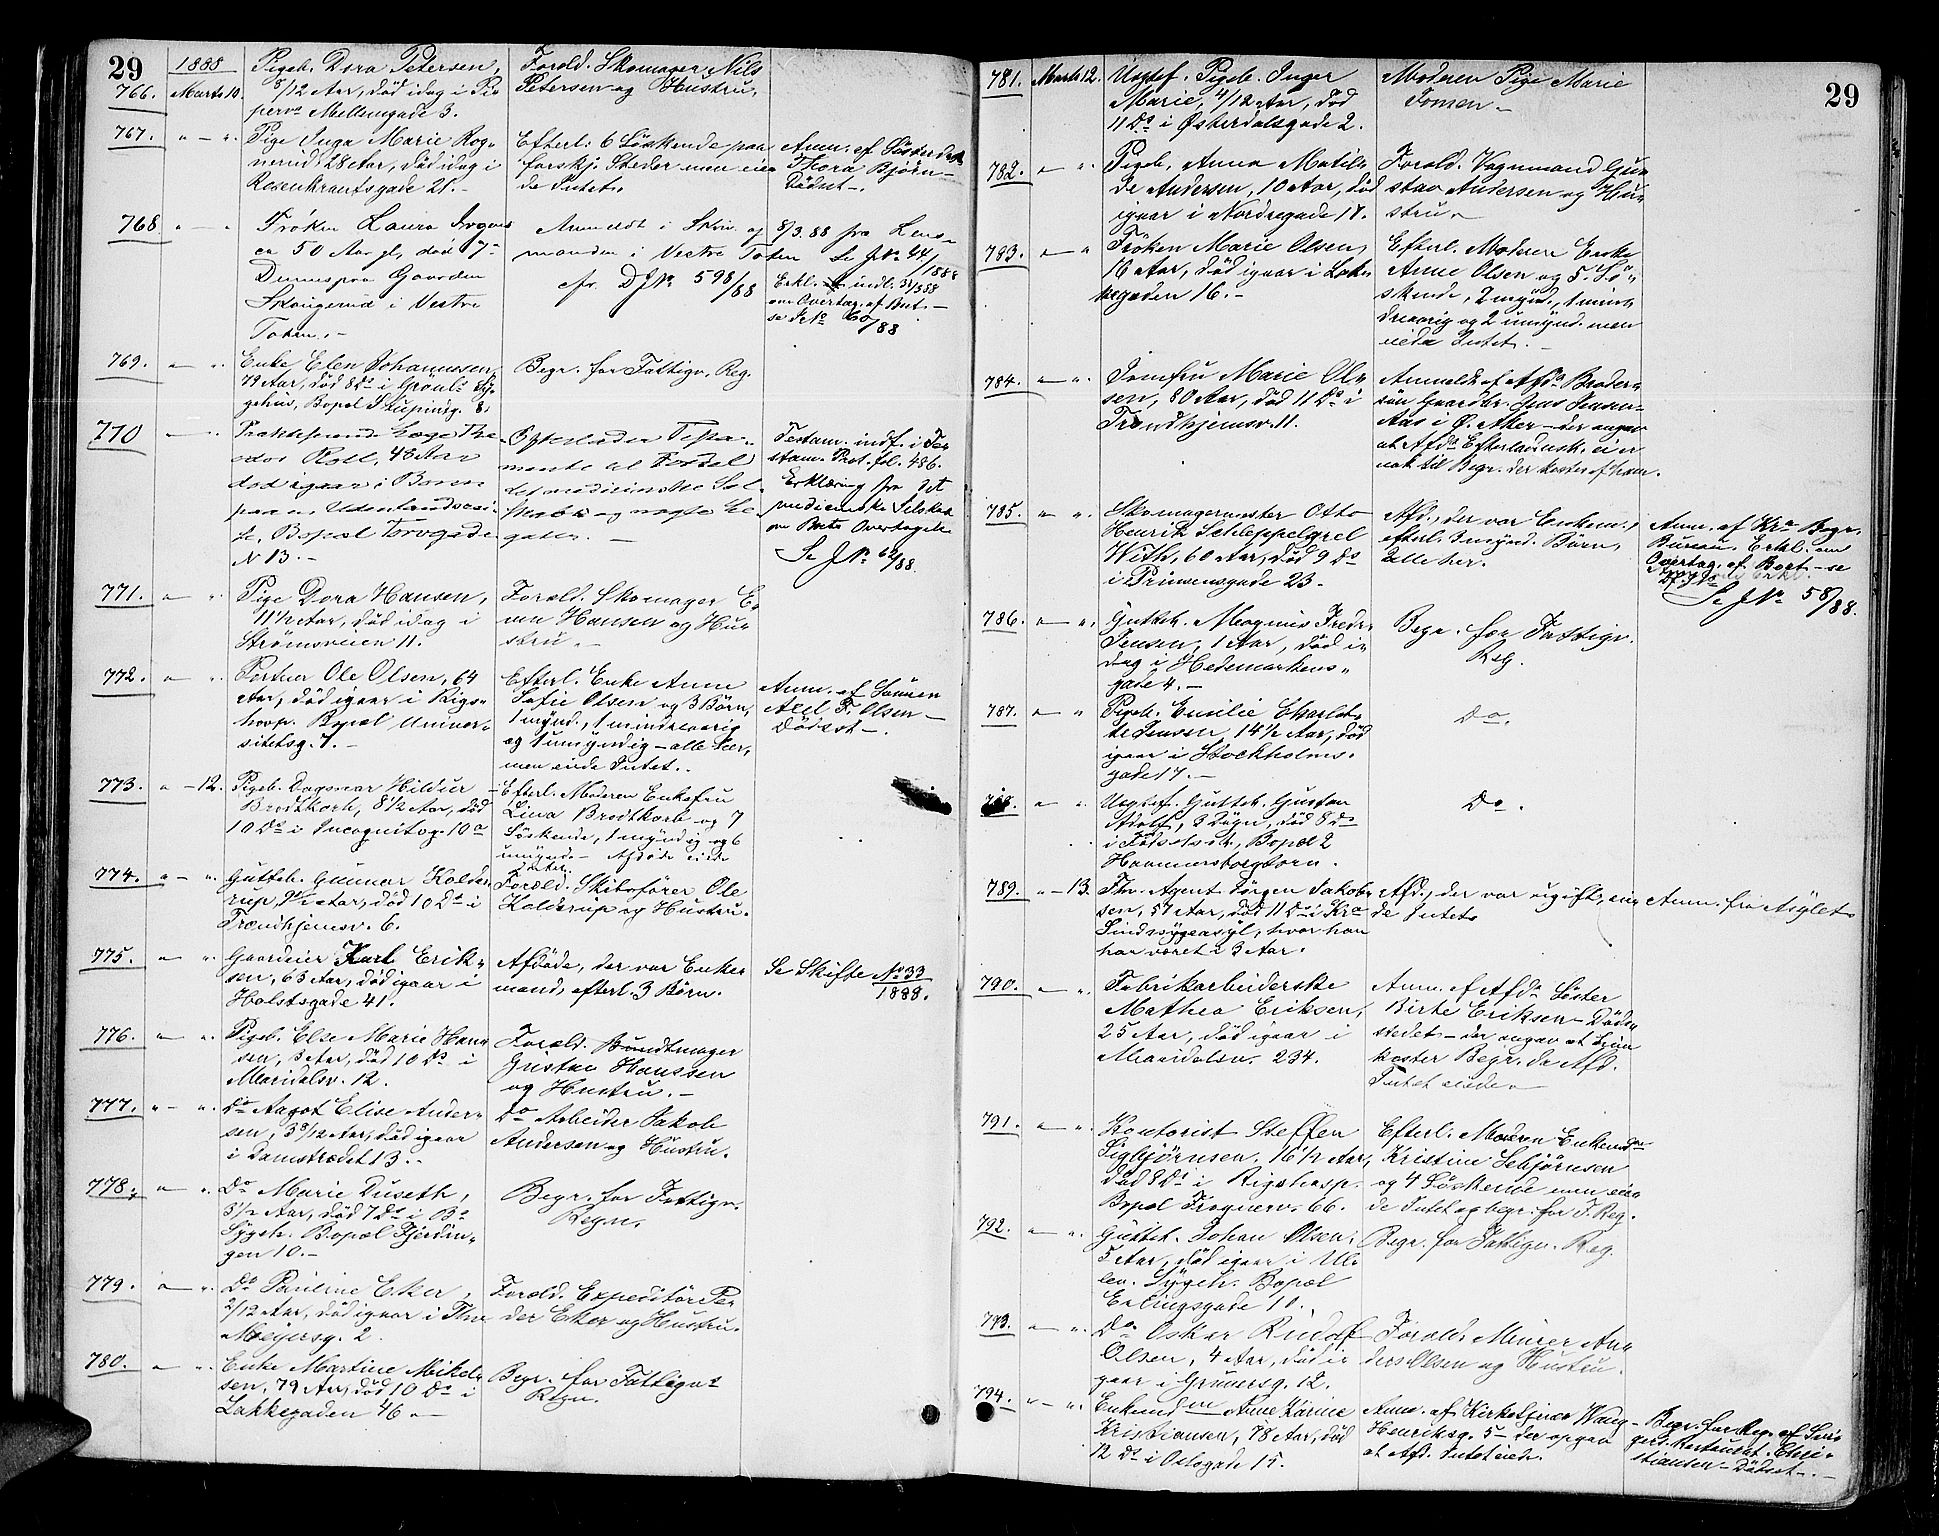 29
1888
766. Marts 10.
Pigeb. Dora Petersen,
8/12 Aar, död idag i Pi
pervs Mellemgade 3.
Foræld. Skomager Nils
Petersen og Hustru,
767. " — "
Pige Inga Marie Rog-
nerud, 28 Aar, död idag i
Rosenkrantsgade 21. -
Efterl. 6 Söskende paa
forskj. Steder men eie
de Intet.
Anm. af Söster
Thora Björn-
Dödsst -.
768 " — "
Fröken Laura
ca 50 Aar gl, död 7-
paa Gaarden
i Vestre
Toten. -
Anmeldt i Skriv. af 8/3.88 fra Lens-
manden i Vestre Toten
cfr. DJNo 598/88
Se JNo 44/1888
Erkl. indl. 31/3 88
om Overtag. af Boet -
se JNo 60/88
769. " — "
Enke Elen Johannessen,
79 Aar, död 8 Ds i Grönl. Sy-
gehus, Bopæl Stupinsg. 8.
Begr. for Fattigv. Reg.
770 — "
Praktiserende Læge The-
odor Roll, 48 Aar
död igaar i
paa en Udenlandsrei-
se, Bopæl Torvgade
N 13. -
Efterladen Testa-
mente til Fordel
det medicinske Sel-
skab og nogle Le-
gater. -
Testam. indf. i Te-
stam. Prot. fl. 486.
Erklæring fra det
medicinske Selskab
om Boets Overtagelse
Se JNo 62/88.
771. " — "
Pige Dora Hansen,
11 1/2 Aar, död idag i
Strömsveien 11.
Foræld. Skomager E-
ven Hansen og Hu-
stru. -
772. " — "
Portner Ole Olsen, 64
Aar, död igaar i Rigs-
hosp. Bopæl Univer-
sitetsg. 7. -
Efterl. Enke Anne
Sofie Olsen og 3 Börn,
1 mynd., 1 mindreaarig
og 1 umyndig - alle her,
men eiede Intet. -
Anm. af Sönnen
Axel F. Olsen -
Dödsst -.
773. " — 12.
Pigeb. Dagmar Hildur
Brodtkorb, 8 1/2 Aar, död
10 Ds i Incognitog. 10 a
Efterl. Moderen Enkefru
Lina Brodtkorb og 7
Söskende, 1 myndig og 6
umynd. - Afdöde eiede
Intet.
774. " — "
Gutteb. Gunnar Kolde-
rup, Aar, död 10 Ds i
Trondhjemsv. 6.
Foræld. Skibsförer Ole
Kolderup og Hustru.
775. " — "
Gaardeier Karl Erik-
sen, 63 Aar, död igaar i
Holstsgade 41.
Afdöde, der var Enke-
mand, efterl. 3 Börn.
Se Skifte No 33
1888.
776. " — "
Pigeb. Else Marie Han-
sen, 3 Aar, död 10 Ds i
Maridalsv. 12.
Foræld. Bundtmager
Gustav Hanssen
og Hustru. -
777. " — "
Do Aagot Elise Ander-
sen, 3 9/12 Aar, död igaar
i Damstrædet 13. -
Do Arbeider Jakob
Andersen og Hustru.
778. " — "
Do Marie Duseth,
3 1/2 Aar, död 7 Ds i Bs
Sygeh. Bopæl Fjerdin-
gen 10. -
Begr. for Fattigv.
Regn.
779. " — "
Do Pauline Eker,
2/12 Aar, död igaar i Thv
Meyersg. 2.
Foræld. Expeditör Pe-
der Eker og Hustru.
780. " — "
Enke Martine Mikel-
sen, 79 Aar, död 10 Ds i
Lakkegaden 46. -
Begr. for Fattigvs
Regn.
29
781. Marts 12.
Uægtef. Pigeb. Inger
Marie, 4/12 Aar, död
11 Ds i Østerdalsgade 2.
Moderen Pige Marie
Tomsen -
782. " — "
Pigeb. Anna Matil-
de Andersen, 10 Aar, död
igaar i Nordregade 17.
Foræld. Vognmand Gu-
stav Andersen og Hu-
stru. -
783. " — "
Fröken Marie Olsen,
16 Aar, död igaar i Lak-
kegaden 16. -
Efterl. Moderen Enke
Anne Olsen og 5 Sö-
skende, 2 mynd., 1 min-
dreaarig og 2 umynd. men
eiede Intet. -
784. " — "
Jomfru Marie Ol-
sen, 80 Aar, död 11 Ds i
Trondhjemsv. 11.
Anmeldt af Afds Broder-
sön Gaardbr. Jens Jensen
Aas i Ø. Aker - der angav
at Afds Efterladensk. ei er
nok til Begr. der kostes af ham.
785. " — "
Skomagermester Otto
Henrik Schleppelgrel
With, 60 Aar, död 9 Ds
i Prinsensgade 23.
Afd., der var Enkem.,
efterl. 3 mynd. Börn,
alle her.
Anm. af Kra Begr.
Bureau. Erkl. om
Overtag. af Boet - se
Se JNo 58/88.
786. " — "
Gutteb. Magnus Fredr.
Jensen, 1 Aar, död i-
dag i Hedemarkens-
gade 4. -
Begr. for Fattigv.
Reg.
787. " — "
Pigeb. Emilie Charlot-
te Jensen, 14 1/2 Aar, död
igaar i Stockholms-
gade 17. -
Do.
788. " — "
Uægtef. Gutteb. Gustav
Adolf, 3 Dögn, död 8 Ds
i Födselsst., Bopæl 2
Hammersborgtorv.
Do.
789. " — 13.
Fhv. Agent Jörgen Jakob-
sen, 57 Aar, död 11 Ds i Kra
Sindssygeasyl, hvor han
har været i 3 Aar.
Afd., der var ugift, eie-
de Intet
Anm. fra Asylet
790. " — "
Fabrikarbeiderske
Mathea Eriksen,
25 Aar, död igaar i
Maridalsv. 234.
Anm. af Afds Söster
Birte Eriksen - Döds-
stedet - der angav at hun
koster Begr. da Afd.
Intet eiede -
791. " — "
Kontorist Steffen
Sigbjörnsen, 16 1/2 Aar,
död 8 Ds i Rigshosp.
Bopæl Frognerv. 66.
Efterl. Moderen Enkemden
Kristine Sebjörnsen
og 4 Söskende men eie-
de Intet og begr. for F. Reg.
792. " — "
Gutteb. Johan Olsen,
5 Aar, död igaar i Ul-
lev. Sygeh. Bopæl
Erlingsgade 10.
Begr. for Fattigv. Reg.
793. " — "
Do Oskar Rudolf
Olsen, 4 Aar, död i-
gaar i Grünersg. 12.
Foræld. Murer An-
ders Olsen og Hustru.
794. " — "
Enkemden Anne Karine
Kristiansen, 78 Aar, död
12 Ds i Oslogade 15.
Anm. af Kirketjener Wang
Henriksg. 5 - der opgav
at Afd. Intet eiede.
Begr. for Reg. af Svi-
gers. Restaurat. Chri-
stiansen - Dödsst -.